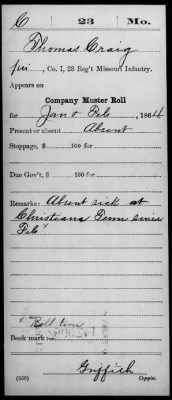 C 23 Mo.
Thomas Craig
Pri, Co. I, 23 Reg't Missouri Infantry.
Appears on
Company Muster Roll
for Jan & Feb, 1864
Present or absent Absent
Stoppage, $ 100 for
Due Gov't, $ 100 for
Remarks: Absent sick at
Christiana Tenn since
Feb
Roll torn
Book mark:
Griffith
(358) Copyist.